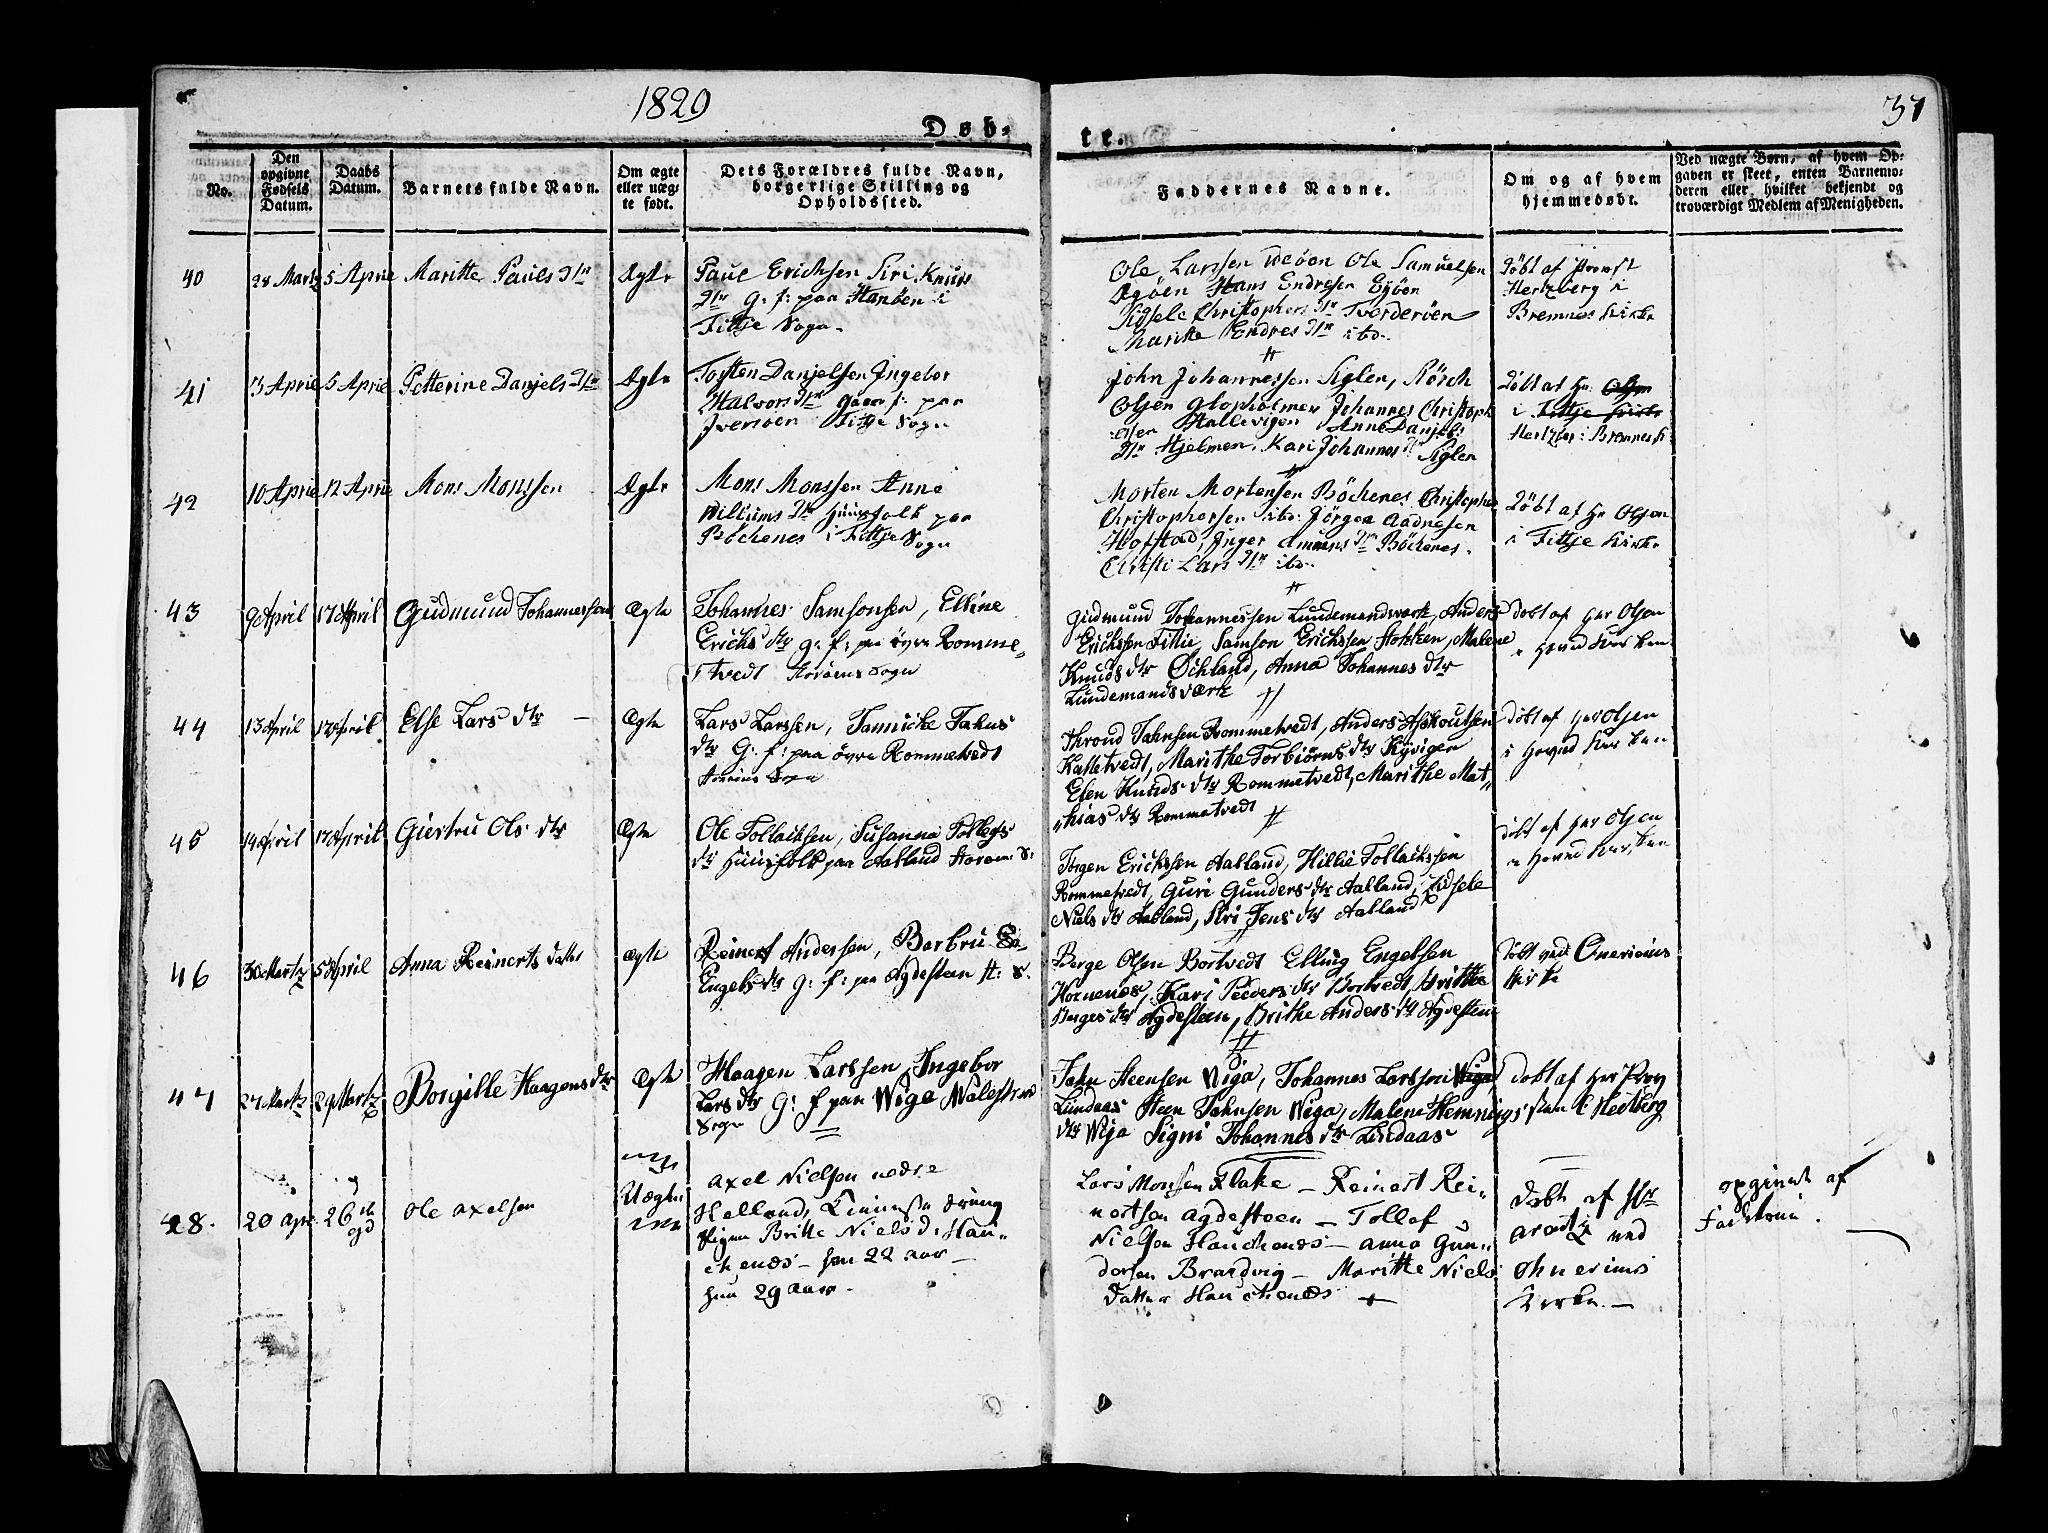 1829
Døb-
te.
37
No.
Den opgivne Fødsels Datum.
Daabs Datum.
Barnets fulde Navn.
Om ægte eller uægte født.
Dets Forældres fulde Navn, borgerlige Stilling og Opholdssted.
Faddernes Navne.
Om og af hvem hjemmedøbt.
Ved uægte Børn, af hvem Opgaven er skeet, enten Barnemoderen eller hvilket bekjendt og troværdigt Medlem af Menigheden.
40
28 Martz
5 April
Maritte Pauls Dtr
Ægte
Paul Erichsen Siri Knuds
Dtr g: f: paa Harøen i
Fittje Sogn
Ole Larssen Ole Samuelsen
Agøen Hans Endresen Egøen
Sidsele Christophers Dtr Tverderøen
Maritte Endres Dtr ibd.
Døbt af Provst
Hertzberg i
Bremnes Kirke
41
3 April
5 April
Petterine Danjels Dtr
Ægte
Torsten Danjelsen Ingebor
Halvors Dtr gaard f: paa
Iversøen Fittje Sogn
John Johannessen Sigler,
Olsen Glopholmen Johannes Christoph
osen Hallevigen Anne Danjels
Dtr Hjelmen, Kari Johannes Dtr Sigler
Døbt af Hr Olsen
i Fittje Kirke
Hertzber i Bremnes K
42
10 April
12 April
Mons Monssen
Ægte
Mons Monssen Anne
Villums Dtr Huusfolk paa
Böchenes i Fittje Sogn
Morten Mortensen Böchenes Christopher
Christophersen ibd. Jörgen Aadnesen
Hofstad, Inger Amunds Dtr Böchenes
Christi Lars Dtr ibd.
Døbt af Hr Olsen
i Fittje Kirke
43
9 April
17 April
Gudmund Johannessen
Ægte
Johannes Samsonsen, Elline
Erichs dtr g: f: paa øvre Romme-
tvedt Storøens Sogn
Gudmund Johannessen Lundemandsværk, Anders
Erichsen Fillie, Samson Erichssen Hokken, Malene
Knuds dtr Öchland, Anna Johannes dtr
Lundemandsværk
Döbt af Her Olsen
i Hoved Kirken
44
13 April
17 April
Else Lars dtr
Ægte
Lars Larssen, Jannicke Jahns
dtr G: f: paa övre Rommetvedt
Storöens Sogn
Thrond Jahnsen Rommetvedt, Anders Aschoutsen
Kattetvedt, Marithe Torbiörns dtr Kyvigen
Elen Knuds dtr Rommetvedt, Marithe Mat-
hias dtr Rommetvedt
Döbt af Her Olsen
i Hoved Kirken
45
14 April
17 April
Giertru Ols dtr
Ægte
Ole Tollachsen, Susanna Tollegs
dtr Huusfolk paa Aadland Storøens S:
Jörgen Erichssen Aadland, Hillie Tollachssen
Rommetvedt, Guri Gunders dtr Aalland, Sidsele
Niels dtr Aadland, Siri Jens dtr Aalland
Döbt af Her Olsen
i Hoved Kirken
46
30 Martz
5 April
Anna Reinerts datter
Ægte
Reinert Andersen, Barbru En-
Engels dtr g: f: paa Agdesteen St: S.
Berge Olsen Bortvedt Elling Engelsen
Hornenes, Kari Peeders dtr Bortvedt, Brithe
Berges dtr Agdesteen, Brithe Anders dtr Agdesteen
Döbt ved Onarheims
Kirke
47
27 Martz
29 Martz
Borgille Haagens dtr
Ægte
Haagen Larssen, Ingebor
Lars dtr G: f paa Wiga Walestrand
Sogn
Jahn Steensen Wiga, Johannes Larssen Wiga
Lundaas Steen Jahnsen Wiga, Malene Hemnings
dtr Wiga Signi Johannes dtr Lindaas
Döbt af Her Prov
sten C Hertberg
48.
20 Apr.
26 de
ejd
Ole Axelsen
Uægte
Axel Nielsen nedre
Helland,
Pigen Britte Niels d: Hau-
chenæs - han 22 aar -
hun 29 aar -
Lars Monsen Flake - Reinert Rei-
nertsen Agdesteen - Tollef
Nielsen Hauchenæs - Anna Gun-
dersen Brandvig - Maritte Niels
datter Hauchenæs
Døbt af Hr
Arentz ved
Ohnerims
Kirke. -
opgivet af
Fadderne.